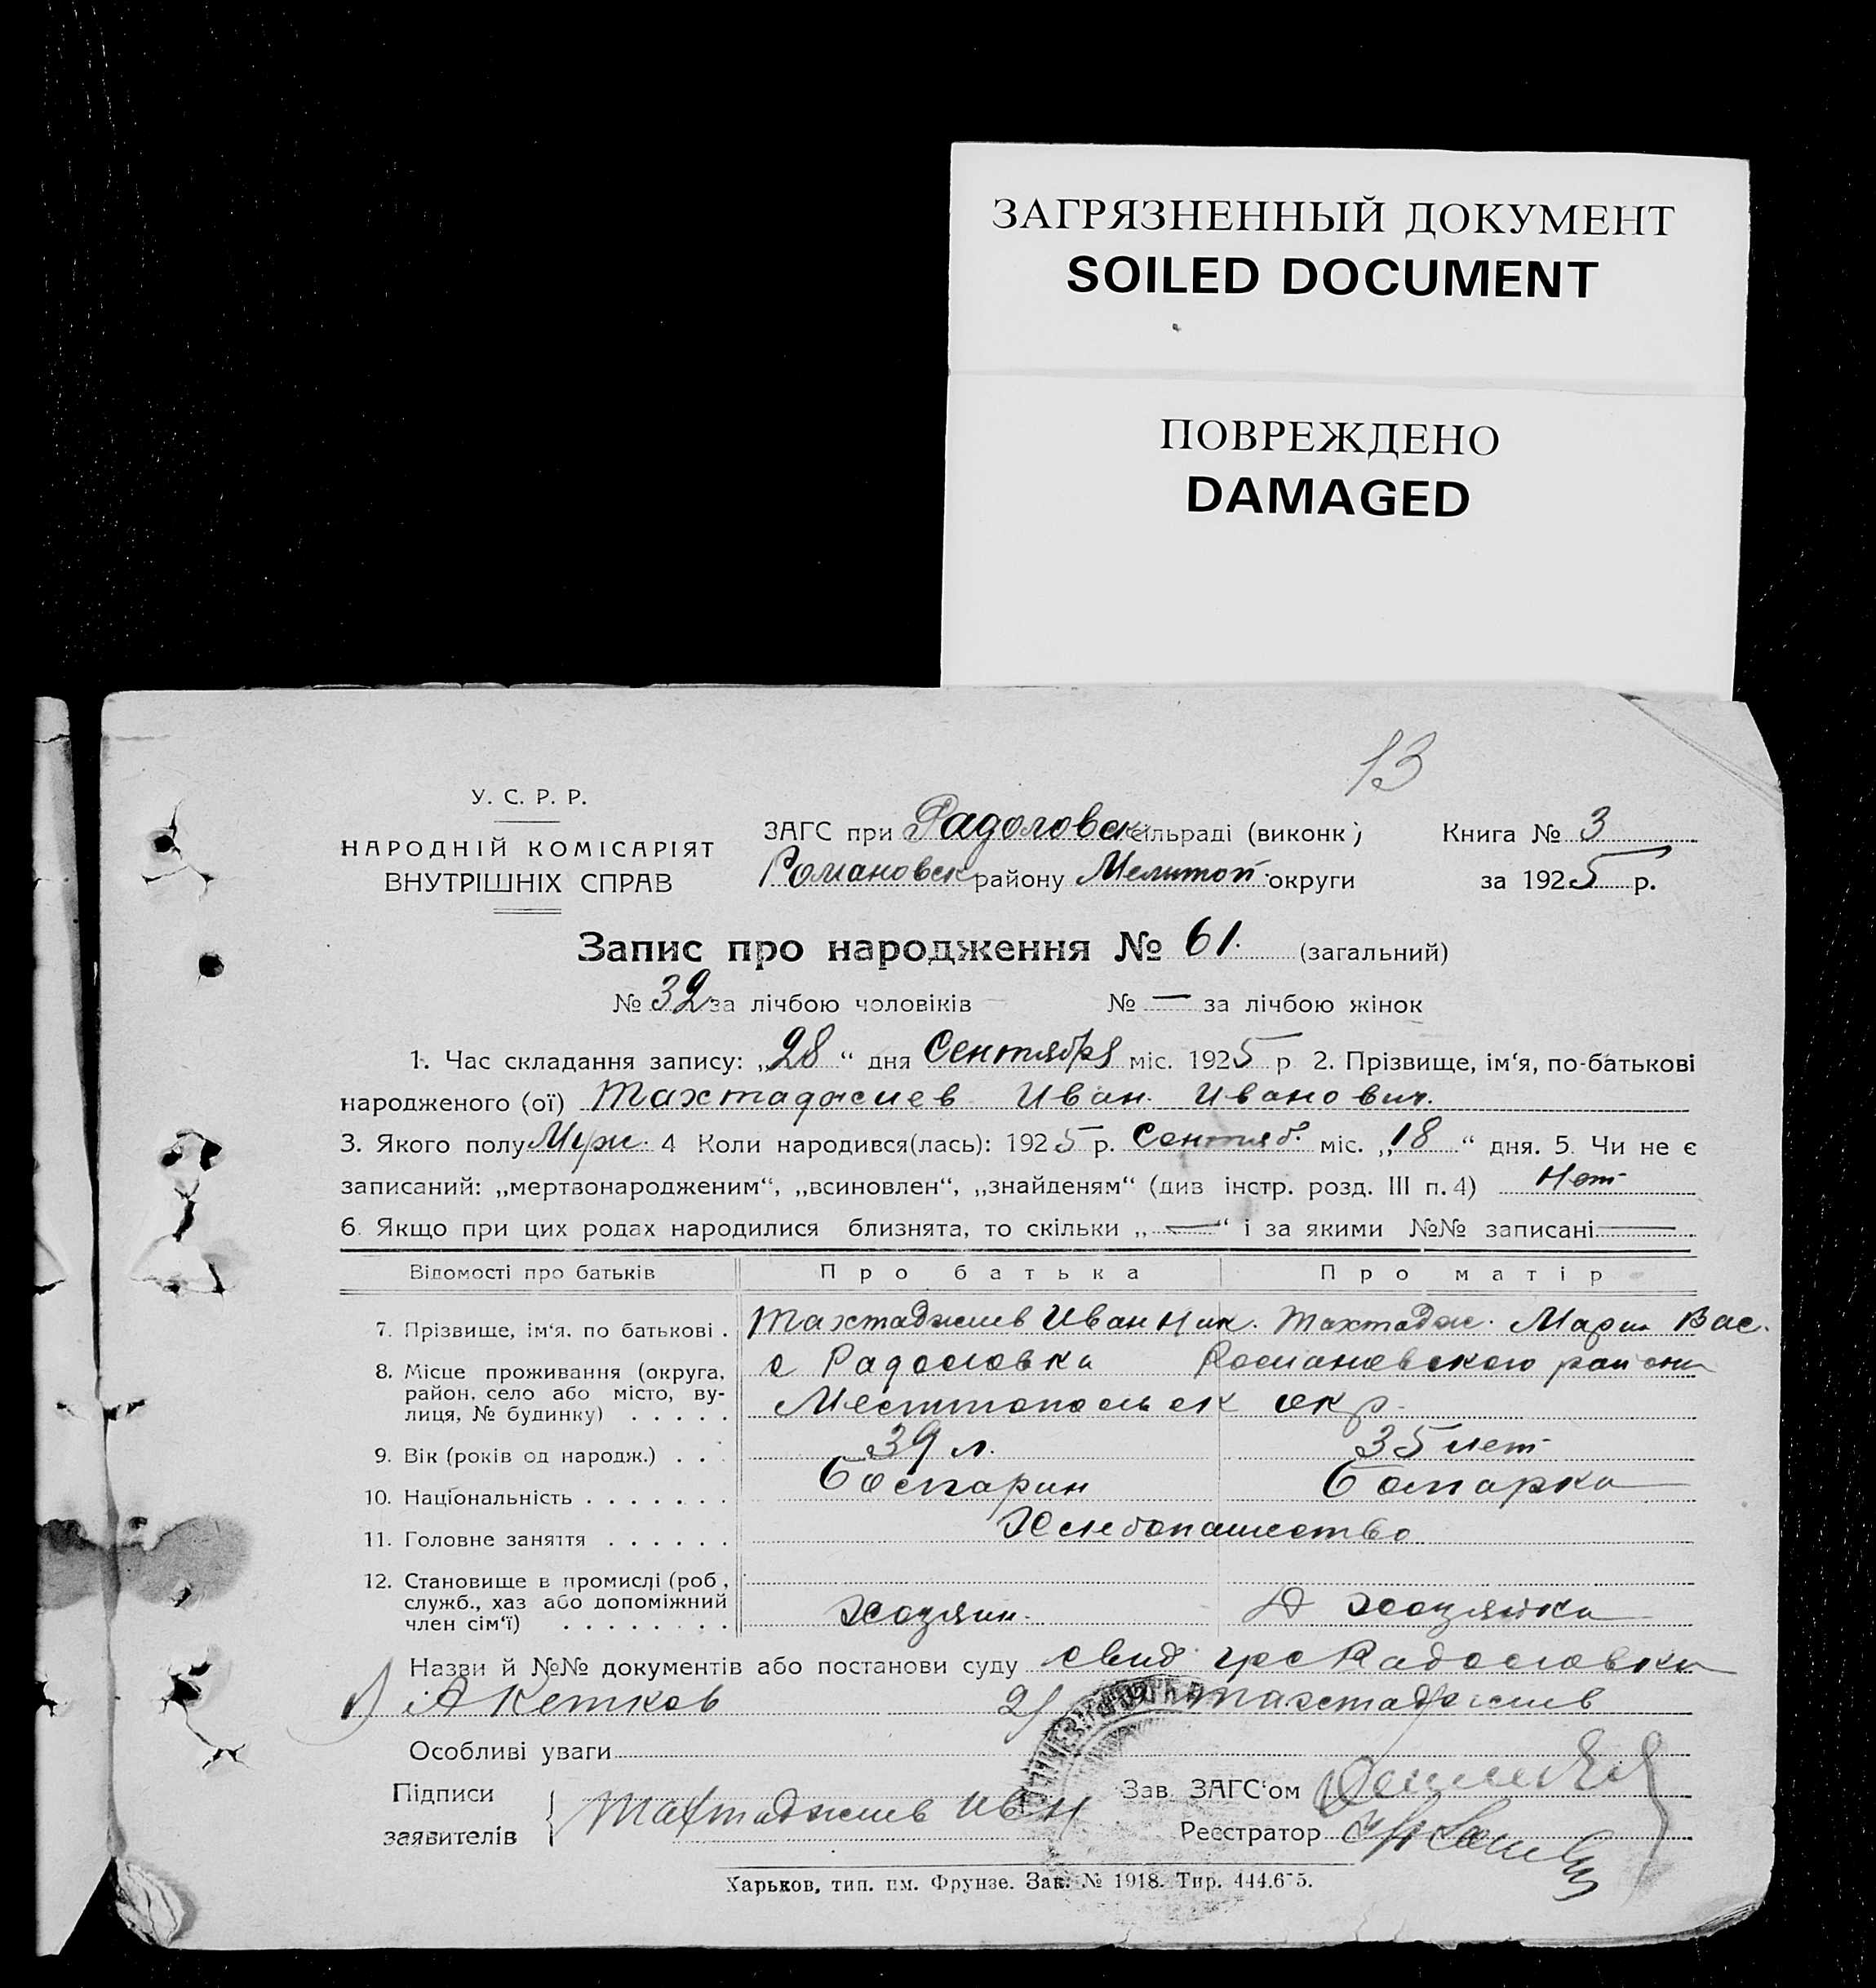 ЗАГРЯЗНЕННЫЙ ДОКУМЕНТ
SOILED DOCUMENT
ПОВРЕЖДЕНО
DAMAGED
13
У. С. Р. Р.
НАРОДНІЙ КОМІСАРІЯТ
ВНУТРІШНІХ СПРАВ
ЗАГС при Радоловск сільраді (виконк)
Романовск району Мелитоп округи
Книга № 3
за 1925 р.
Запис про народження № 61. (загальний)
№ 32 за лічбою чоловіків № — за лічбою жінок
1. Час складання запису: „28“ дня Сентября міс. 1925 р 2. Прізвище, ім‘я, по-батькові
народженого (ої) Тахтаджиев Иван Иванович.
3. Якого полу Муж. 4 Коли народився(лась): 1925 р. Сентяб. міс. „18“ дня. 5. Чи не є
записаний: „мертвонародженим“, „всиновлен“, „знайденям“ (див інстр. розд. III п. 4) Нет
6. Якщо при цих родах народилися близнята, то скільки „—“ і за якими №№ записані —
Відомості про батьків Про батька Про матір
7. Прізвище, ім‘я, по батькові . Тахтаджиев Иван Ник. Тахтадж. Мария Вас.
8. Місце проживання (округа, с Радоловка Романовского района
район, село або місто, ву-
лиця, № будинку) . . . . . Мелитопольск окр.
9. Вік (років од народж.) . . . 39 л. 35 лет
10. Національність . . . . . . . Болгарин Болгарка
11. Головне заняття . . . . . . Хлебопашество
12. Становище в промислі (роб.,
служб., хаз або допоміжний
член сім‘ї) . . . . . . . . Хозяин. Д хозяйка
Назви й №№ документів або постанови суду свид Радоловки
1) А Кетков 2) Тахтаджиев
Особливі уваги
Підписи
заявителів
Тахтаджиев Иван
Зав. ЗАГС‘ом
Реєстратор
Харьков, тип. им. Фрунзе. Зак. № 1918. Тир. 444.675.